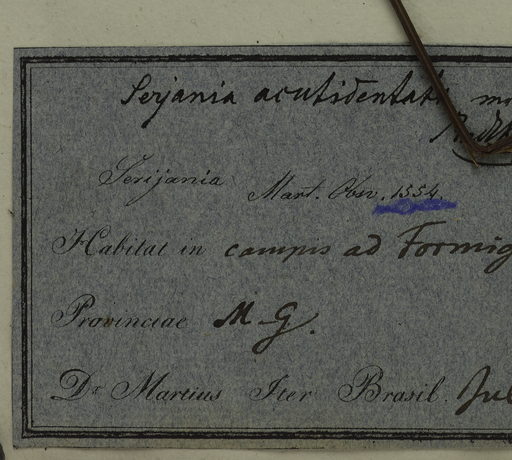 Serjania acutidentata
Serijania Mart. Obsv. 1554.
Habitat in campis ad Formig
Provinciae M. G.
Dr. Martius Iter Brasil. Jul